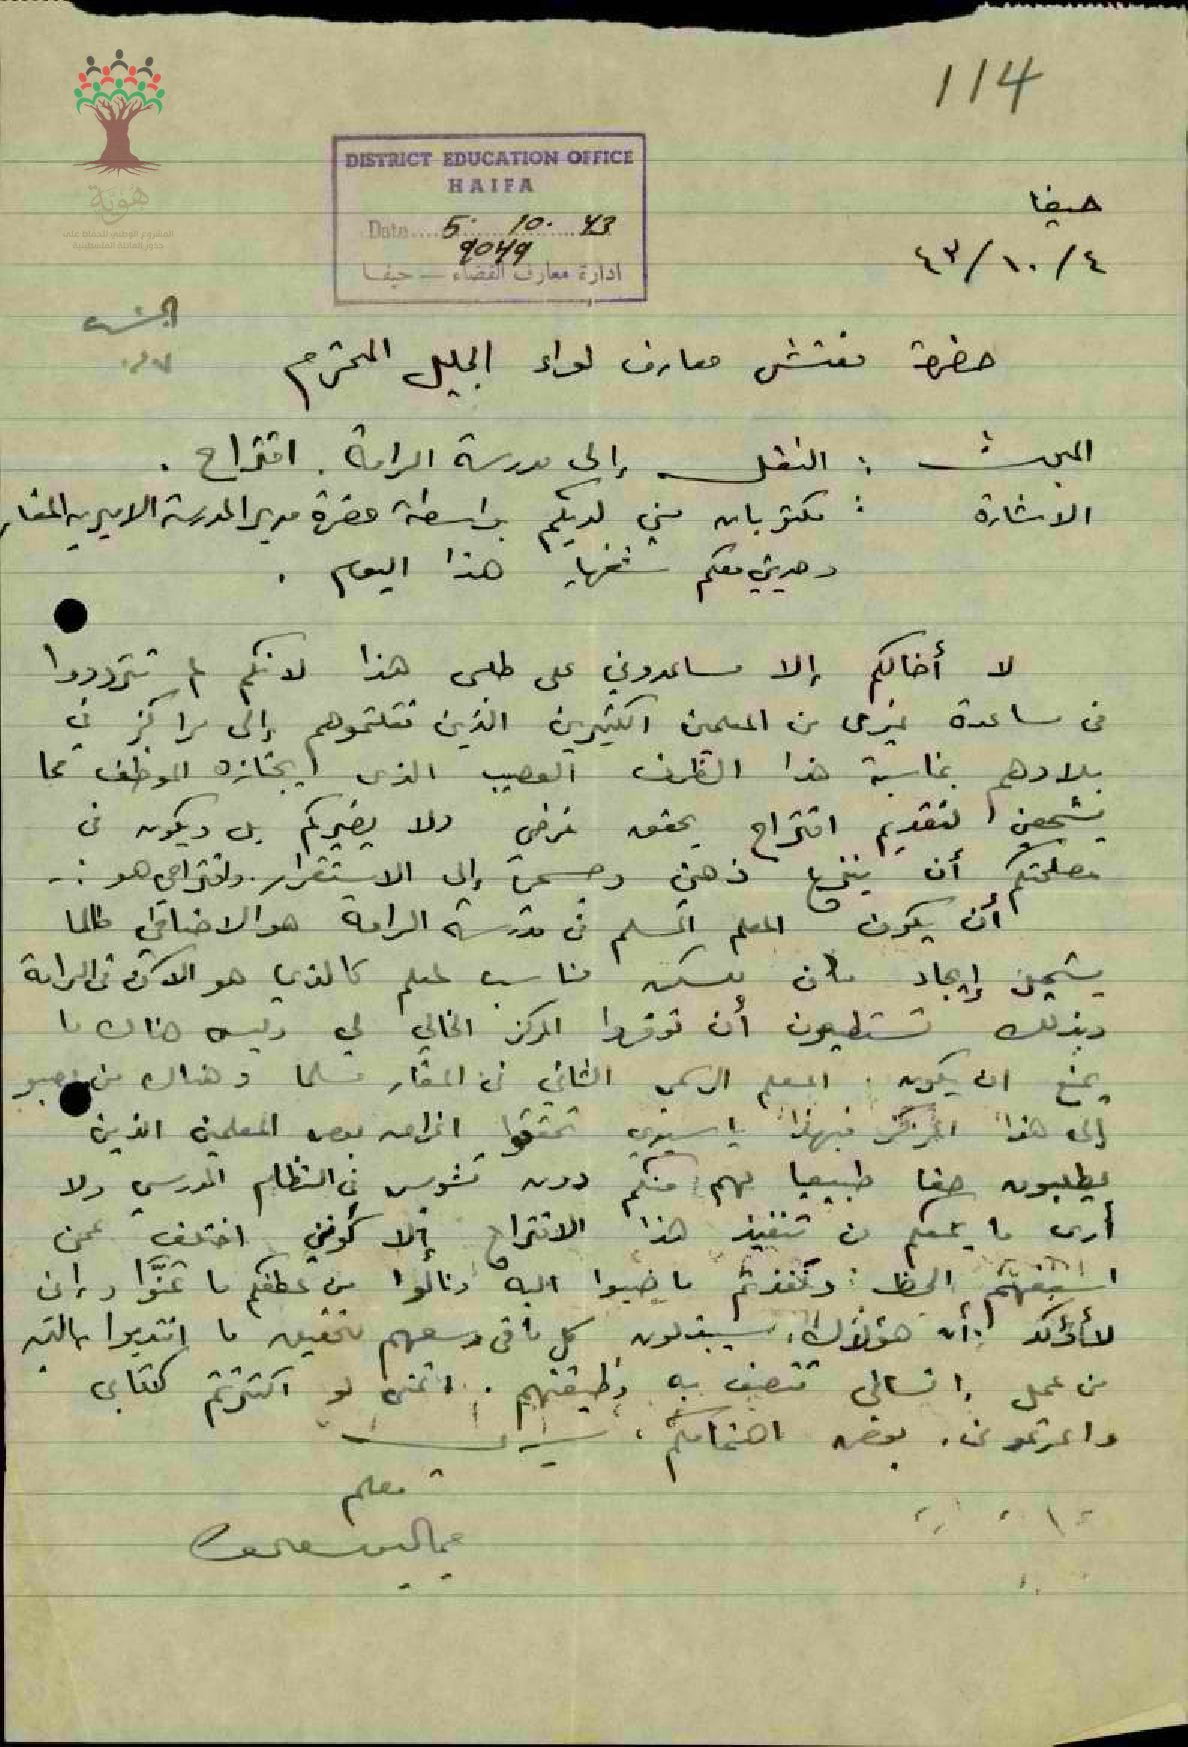 114
هوية
المشروع الوطني للحفاظ على
جذور العائلة الفلسطينية
DISTRICT EDUCATION OFFICE
HAIFA
Date 5. 10. 43
9049
ادارة معارف القضاء — حيفا
حيفا
٤/١٠/٤٣
حضرة مفتش معارف لواء الجليل المحترم
المبحث : النقل إلى مدرسة الرامة . اقتراح .
الاشارة : مكتوبان مني لديكم بواسطة حضرة مدير المدرسة الاميرية المغار
وحديثي معكم شفهيا هذا اليوم .
لا أخالكم إلا مساعدوني على طلبي هذا لانكم لم تترددوا
في مساعدة غيري من المعلمين الكثيرين الذين نقلتموهم إلى مراكز في
بلادهم بمناسبة هذا الظرف العصيب الذي يجتازه الموظف مما
يشجعني لتقديم اقتراح يحقق غرضي ولا يضيركم بل ويكون في
مصلحتكم أن ذهني وجسمي إلى الاستقرار. واقتراحي هو :-
أن يكون المعلم المسلم في مدرسة الرامة هو الاضافي طالما
إيجاد مسكن مناسب لمعلم كالذي هو الآن في الرامة
وبذلك تستطيعون أن توفروا المركز الخالي لي وليس هناك ما
يمنع ان يكون المعلم الرسمي الثاني في المغار مسلما وهناك من يصبو
إلى هذا المركز فبهذا يا سيدي تحققوا اغراض بعض المعلمين الذين
يطلبون حقا طبيعيا لهم منكم دون تشويش في النظام المدرسي ولا
أرى ما يمنعكم من تنفيذ هذا الاقتراح إلا كوني اختلف عمن
الحظ ونفذتم ما صبوا اليه ونالوا من عطفكم ما تمنوا وإني
لأؤكد أن هؤلاء سيبذلون كل ما في وسعهم لتحقيق ما انتدبوا
من عمل إنساني تتصف به وظيفتهم . اتمنى لو اكترثتم لكتابي
واعرتموني بعض اهتمامكم،
معلم